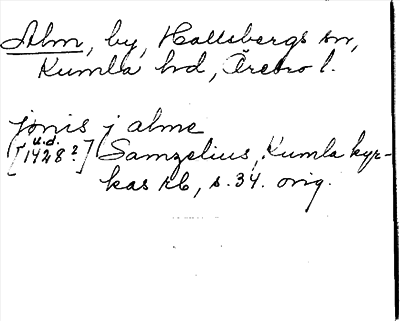 Alm, by, Hallsbergs sn,
Kumla hd, Örebro l.
jönis j alme
[u.d. 1428?] Samzelius, Kumla kyr-
kas rb, s. 34. orig.